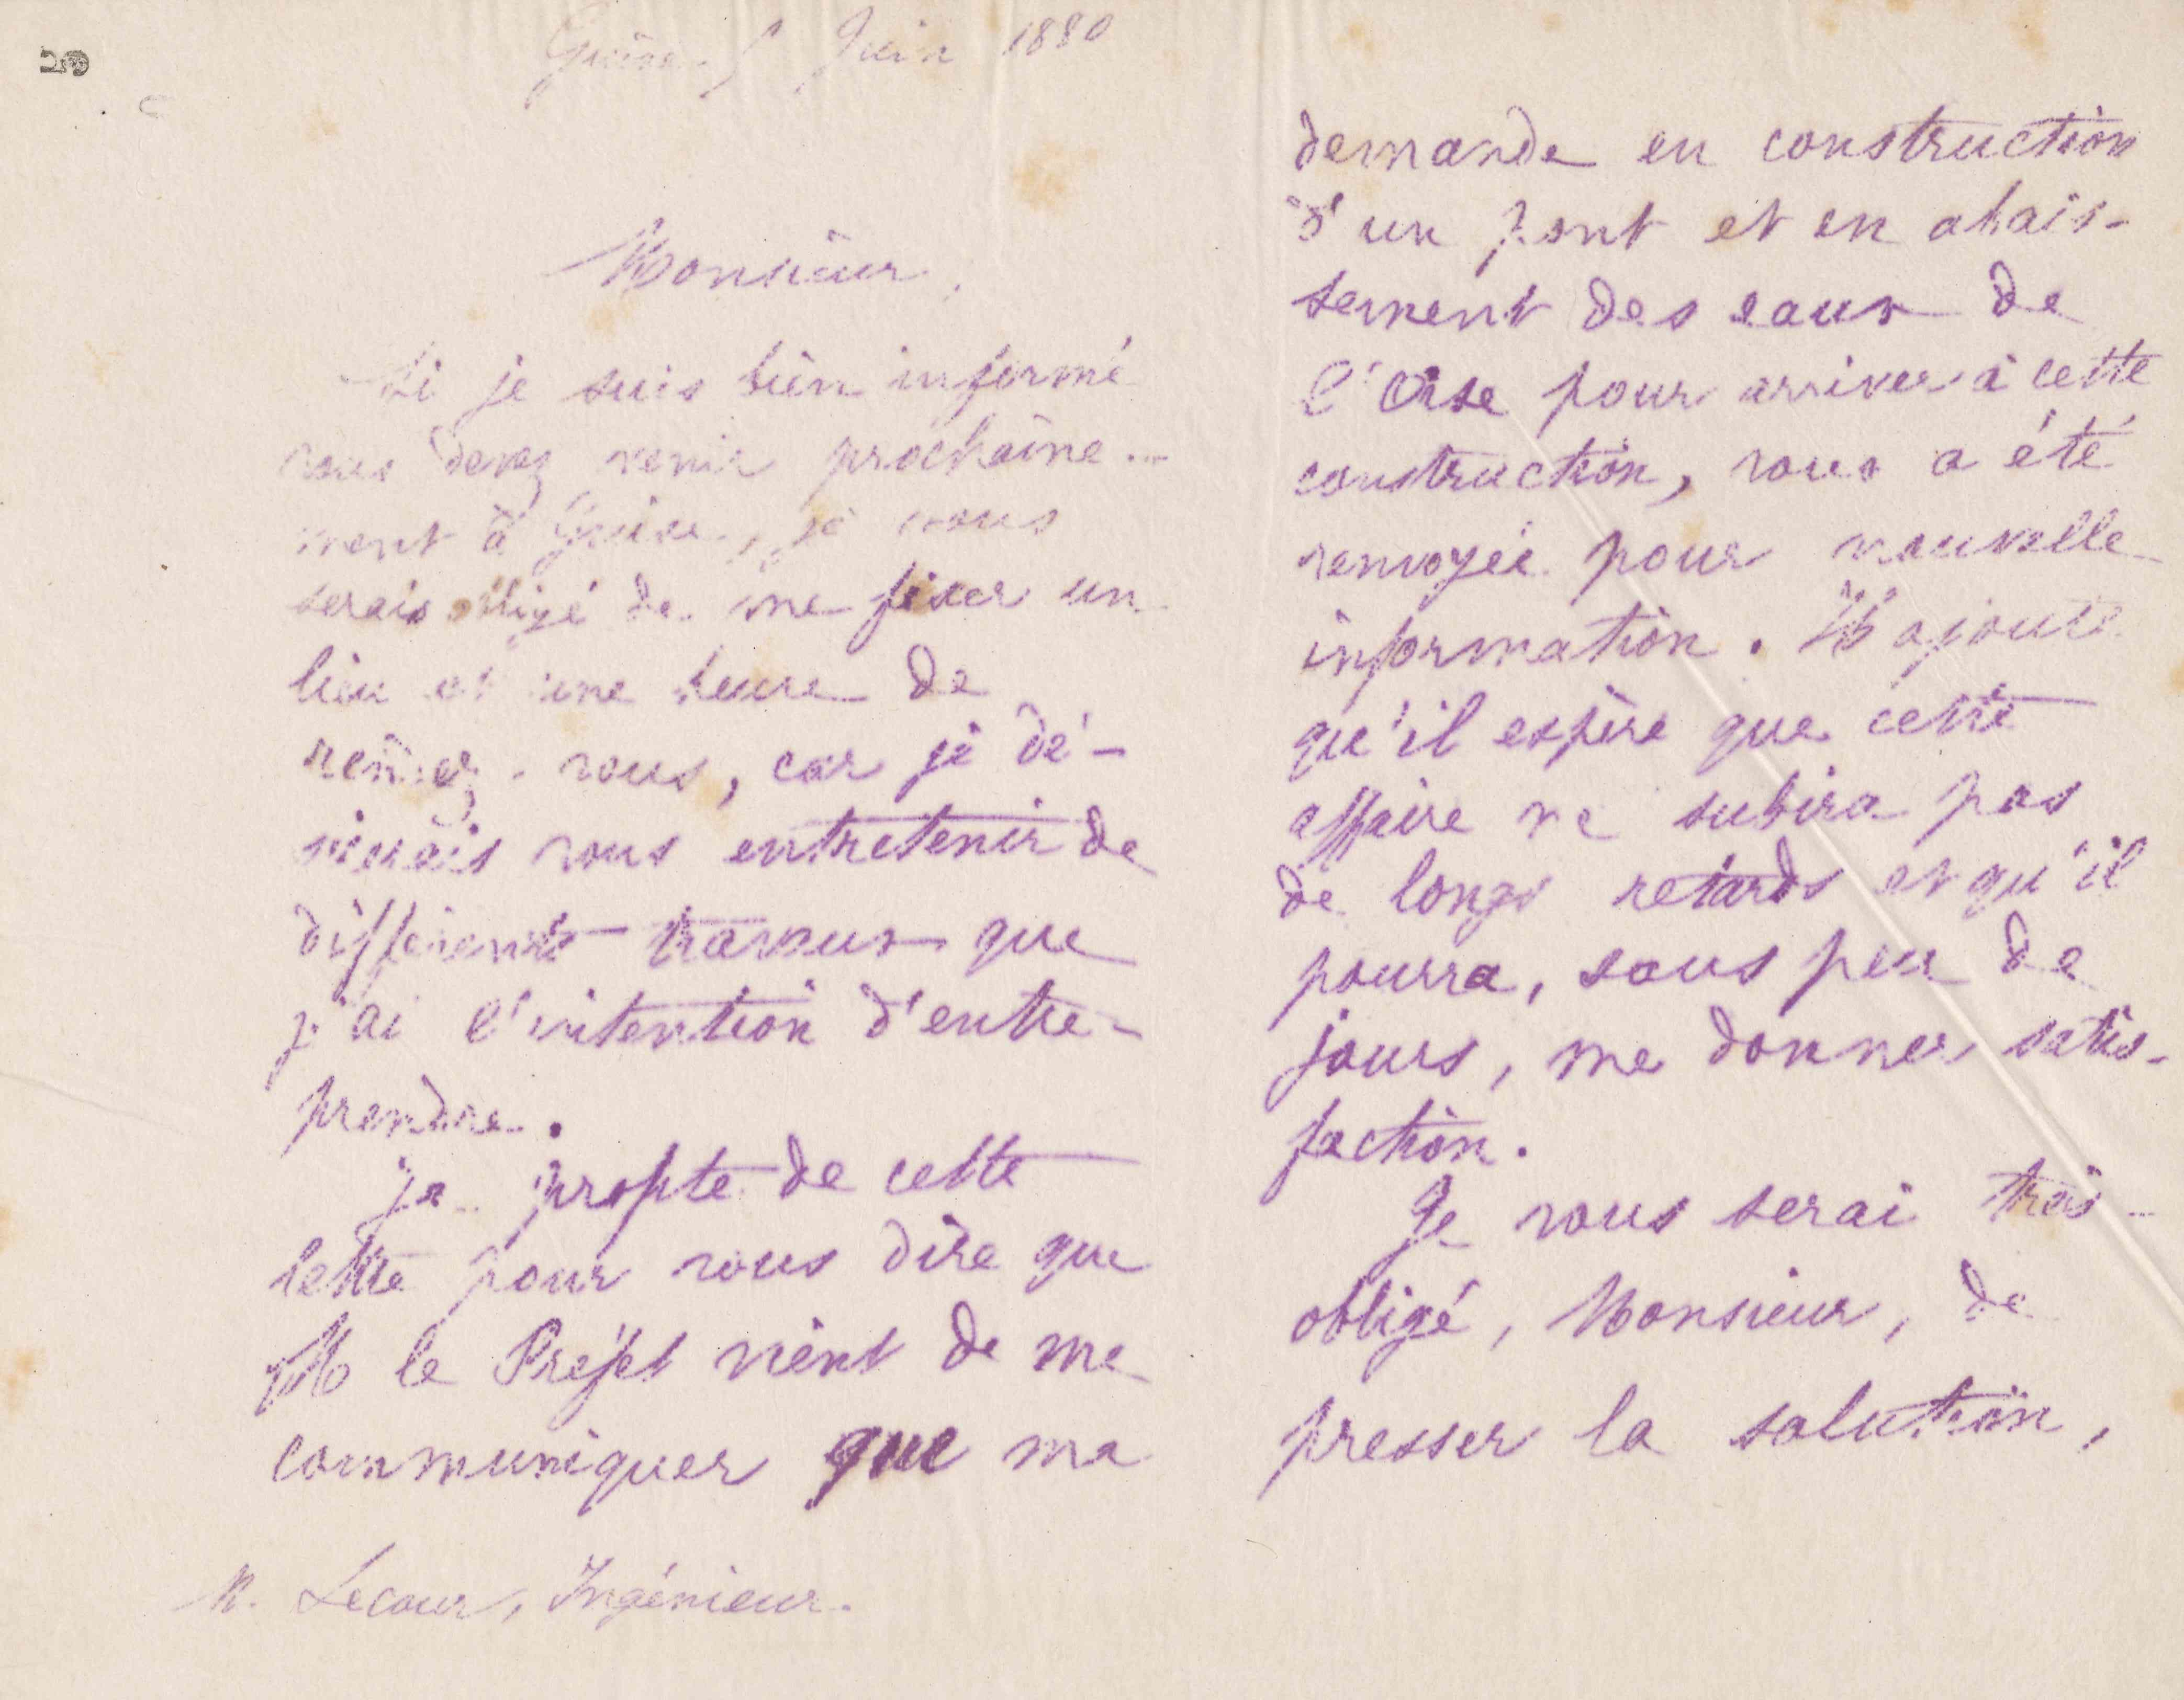 Guise 5 Juin 1880
Monsieur,
Si je suis bien informé
vous devez venir prochaine-
ment à Guise, je vous
serais obligé de me fixer un
lieu et une heure de
rendez-vous, car je dé-
sirerais vous entretenir de
différents travaux que
j'ai l'intention d'entre-
prendre.
Je profite de cette
lettre pour vous dire que
M le Préfet vient de me
communiquer que ma
M. Lecour, Ingénieur.
demande en construction
d'un pont et en abais-
sement des eaux de
l'Oise pour arriver à cette
construction, vous a été
renvoyée pour nouvelle
information. Il ajoute
qu'il espère que cette
affaire ne subira pas
de longs retards et qu'il
pourra, sous peu de
jours, me donner satis-
faction.
Je vous serai très-
obligé, Monsieur, de
presser la solution,